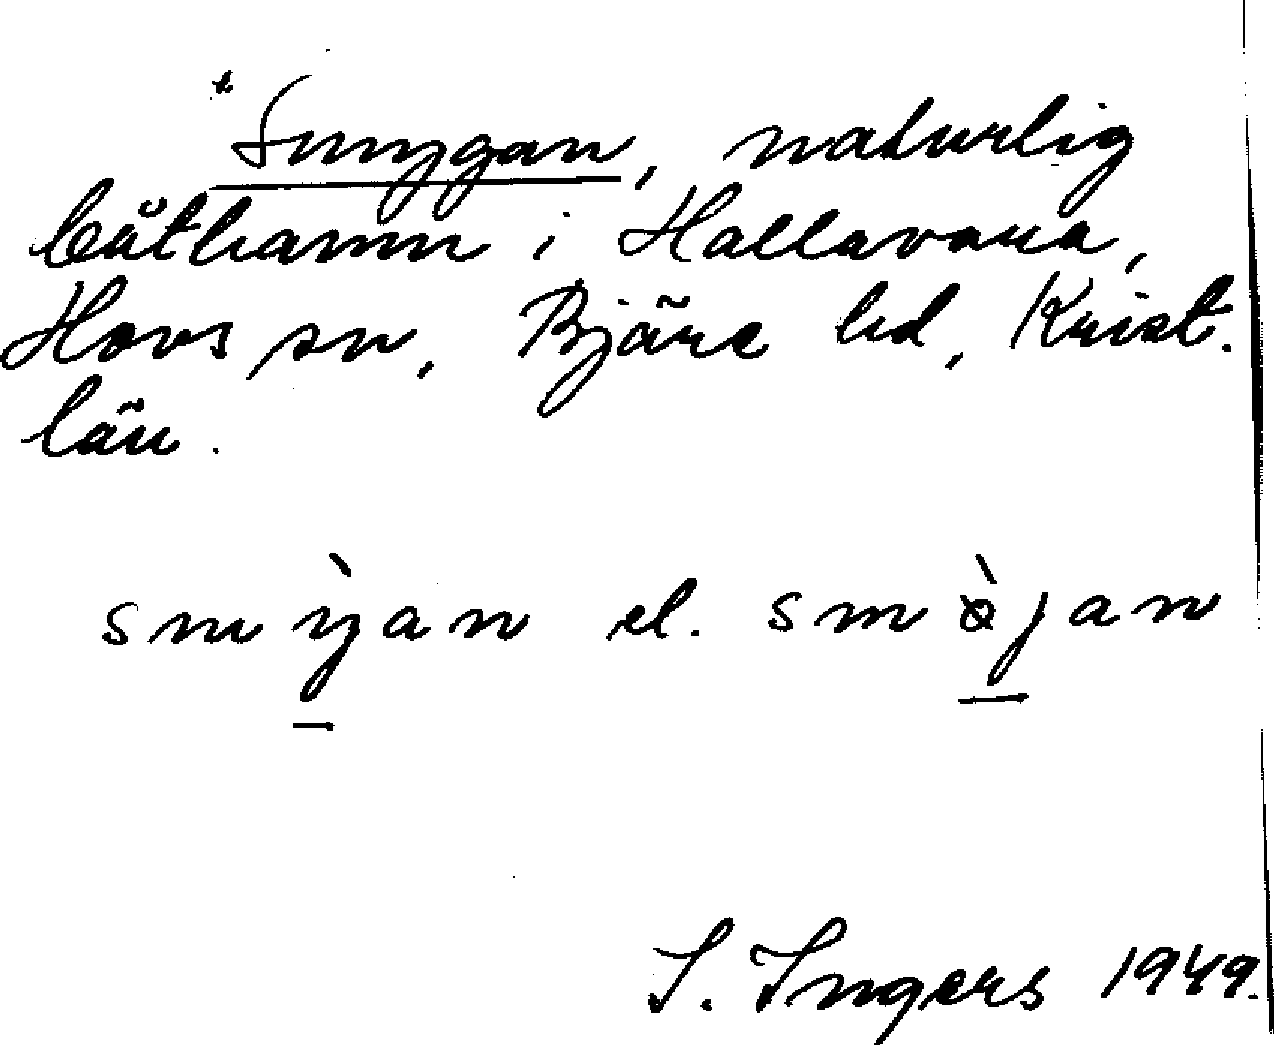 * Smygan, naturlig
båthamn i Hallavara,
Hovs sn, Bjäre hd, Krist.
län.
smỳjan el. smø̀jan
I. Ingers 1949.